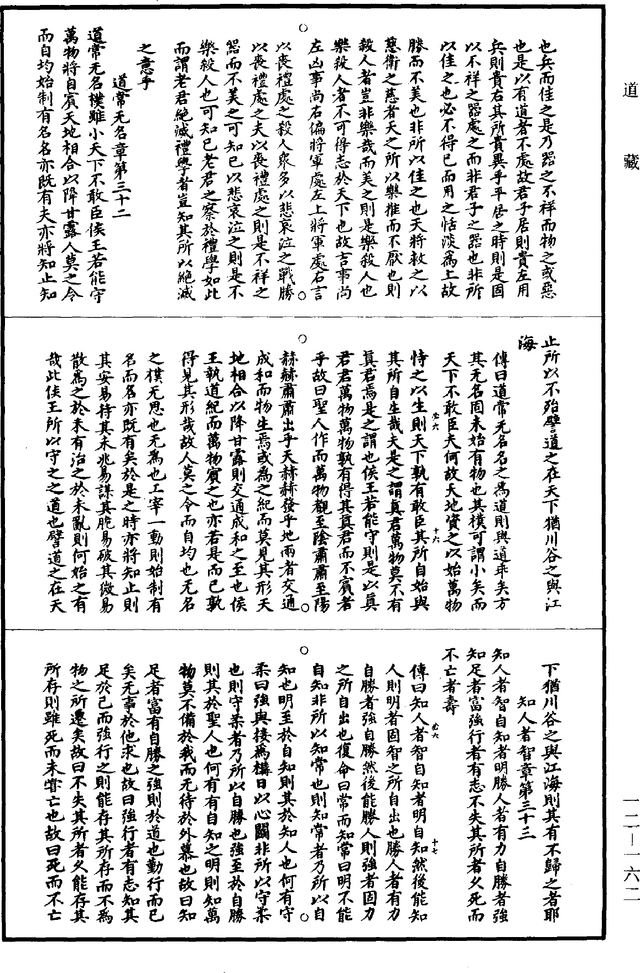 道藏
也兵而佳之是乃器之不祥而物之或惡
也是以有道者不處故君子居則貴左用
兵則貴右其所貴異乎平居之時則是固
以不祥之器處之而非君子之器也非所
以佳之也必不得已而用之恬淡為上故
勝而不美也非所以佳之也天將救之以
慈衛之慈者天之所以樂推而不厭也則
殺人者豈非樂哉而美之則是樂殺人也
樂殺人者不可得志於天下也故吉事尚
左凶事尚右偏將軍處左上將軍處右言
以喪禮處之殺人衆多以悲哀泣之戰勝
以喪禮處之夫以喪禮處之則是不祥之
器而不美之可知已以悲哀泣之則是不
樂殺人也可知已老君之察於禮學如此
而謂老君絕滅禮學者豈知其所以絕滅
之意乎
道常无名章第三十二
道常无名樸雖小天下不敢臣侯王若能守
萬物將自賓天地相合以降甘露人莫之令
而自均始制有名名亦既有夫亦將知止知
止所以不殆譬道之在天下猶川谷之與江
海
傳曰道常无名名之為道則與道乖矣方
其无名固未始有物也其樸可謂小矣而
天下不敢臣夫何故天地資之以始萬物
恃之以生則天下孰有敢臣其所自始與
其所自生哉夫是之謂真君萬物莫不有
真君焉是之謂也侯王若能守則是以真
君君萬物萬物孰有得其真君而不賓者
乎故曰聖人作而萬物覩至陰肅肅至陽
赫赫肅肅出乎天赫赫發乎地兩者交通
成和而物生焉或為之紀而莫見其形天
地相合以降甘露則交通成和之至也侯
王執道紀而萬物賓之也亦若是而已孰
得見其形哉故人莫之令而自均也无名
之樸无思也无為也工宰一動則始制有
名而名亦既有矣於是之時亦將知止則
其安易持其未兆易謀其脆易破其微易
散為之於未有治之於未亂則何殆之有
哉此侯王所以守之之道也譬道之在天
下猶川谷之與江海則其有不歸之者耶
知人者智章第三十三
知人者智自知者明勝人者有力自勝者強
知足者富強行者有志不失其所者久死而
不亡者壽
傳曰知人者智自知者明自知然後能知
人則明者固智之所自出也勝人者有力
自勝者強自勝然後能勝人則強者固力
之所自出也復命曰常而知常曰明不能
自知非所以知常也則知常者乃所以自
知也明至於自知則其於知人也何有守
柔曰強與接為構日以心鬭非所以守柔
也則守柔者乃所以自勝也強至於自勝
則其於聖人也何有有自知之明則知萬
物莫不備於我而无待於外慕也故曰知
足者富有自勝之強則於道也勤行而已
矣无事於他求也故曰強行者有志知其
足於己而強行之則能存其所存而不為
物之所遷矣故曰不失其所者久能存其
所存則雖死而未甞亡也故曰死而不亡
一二—一六二